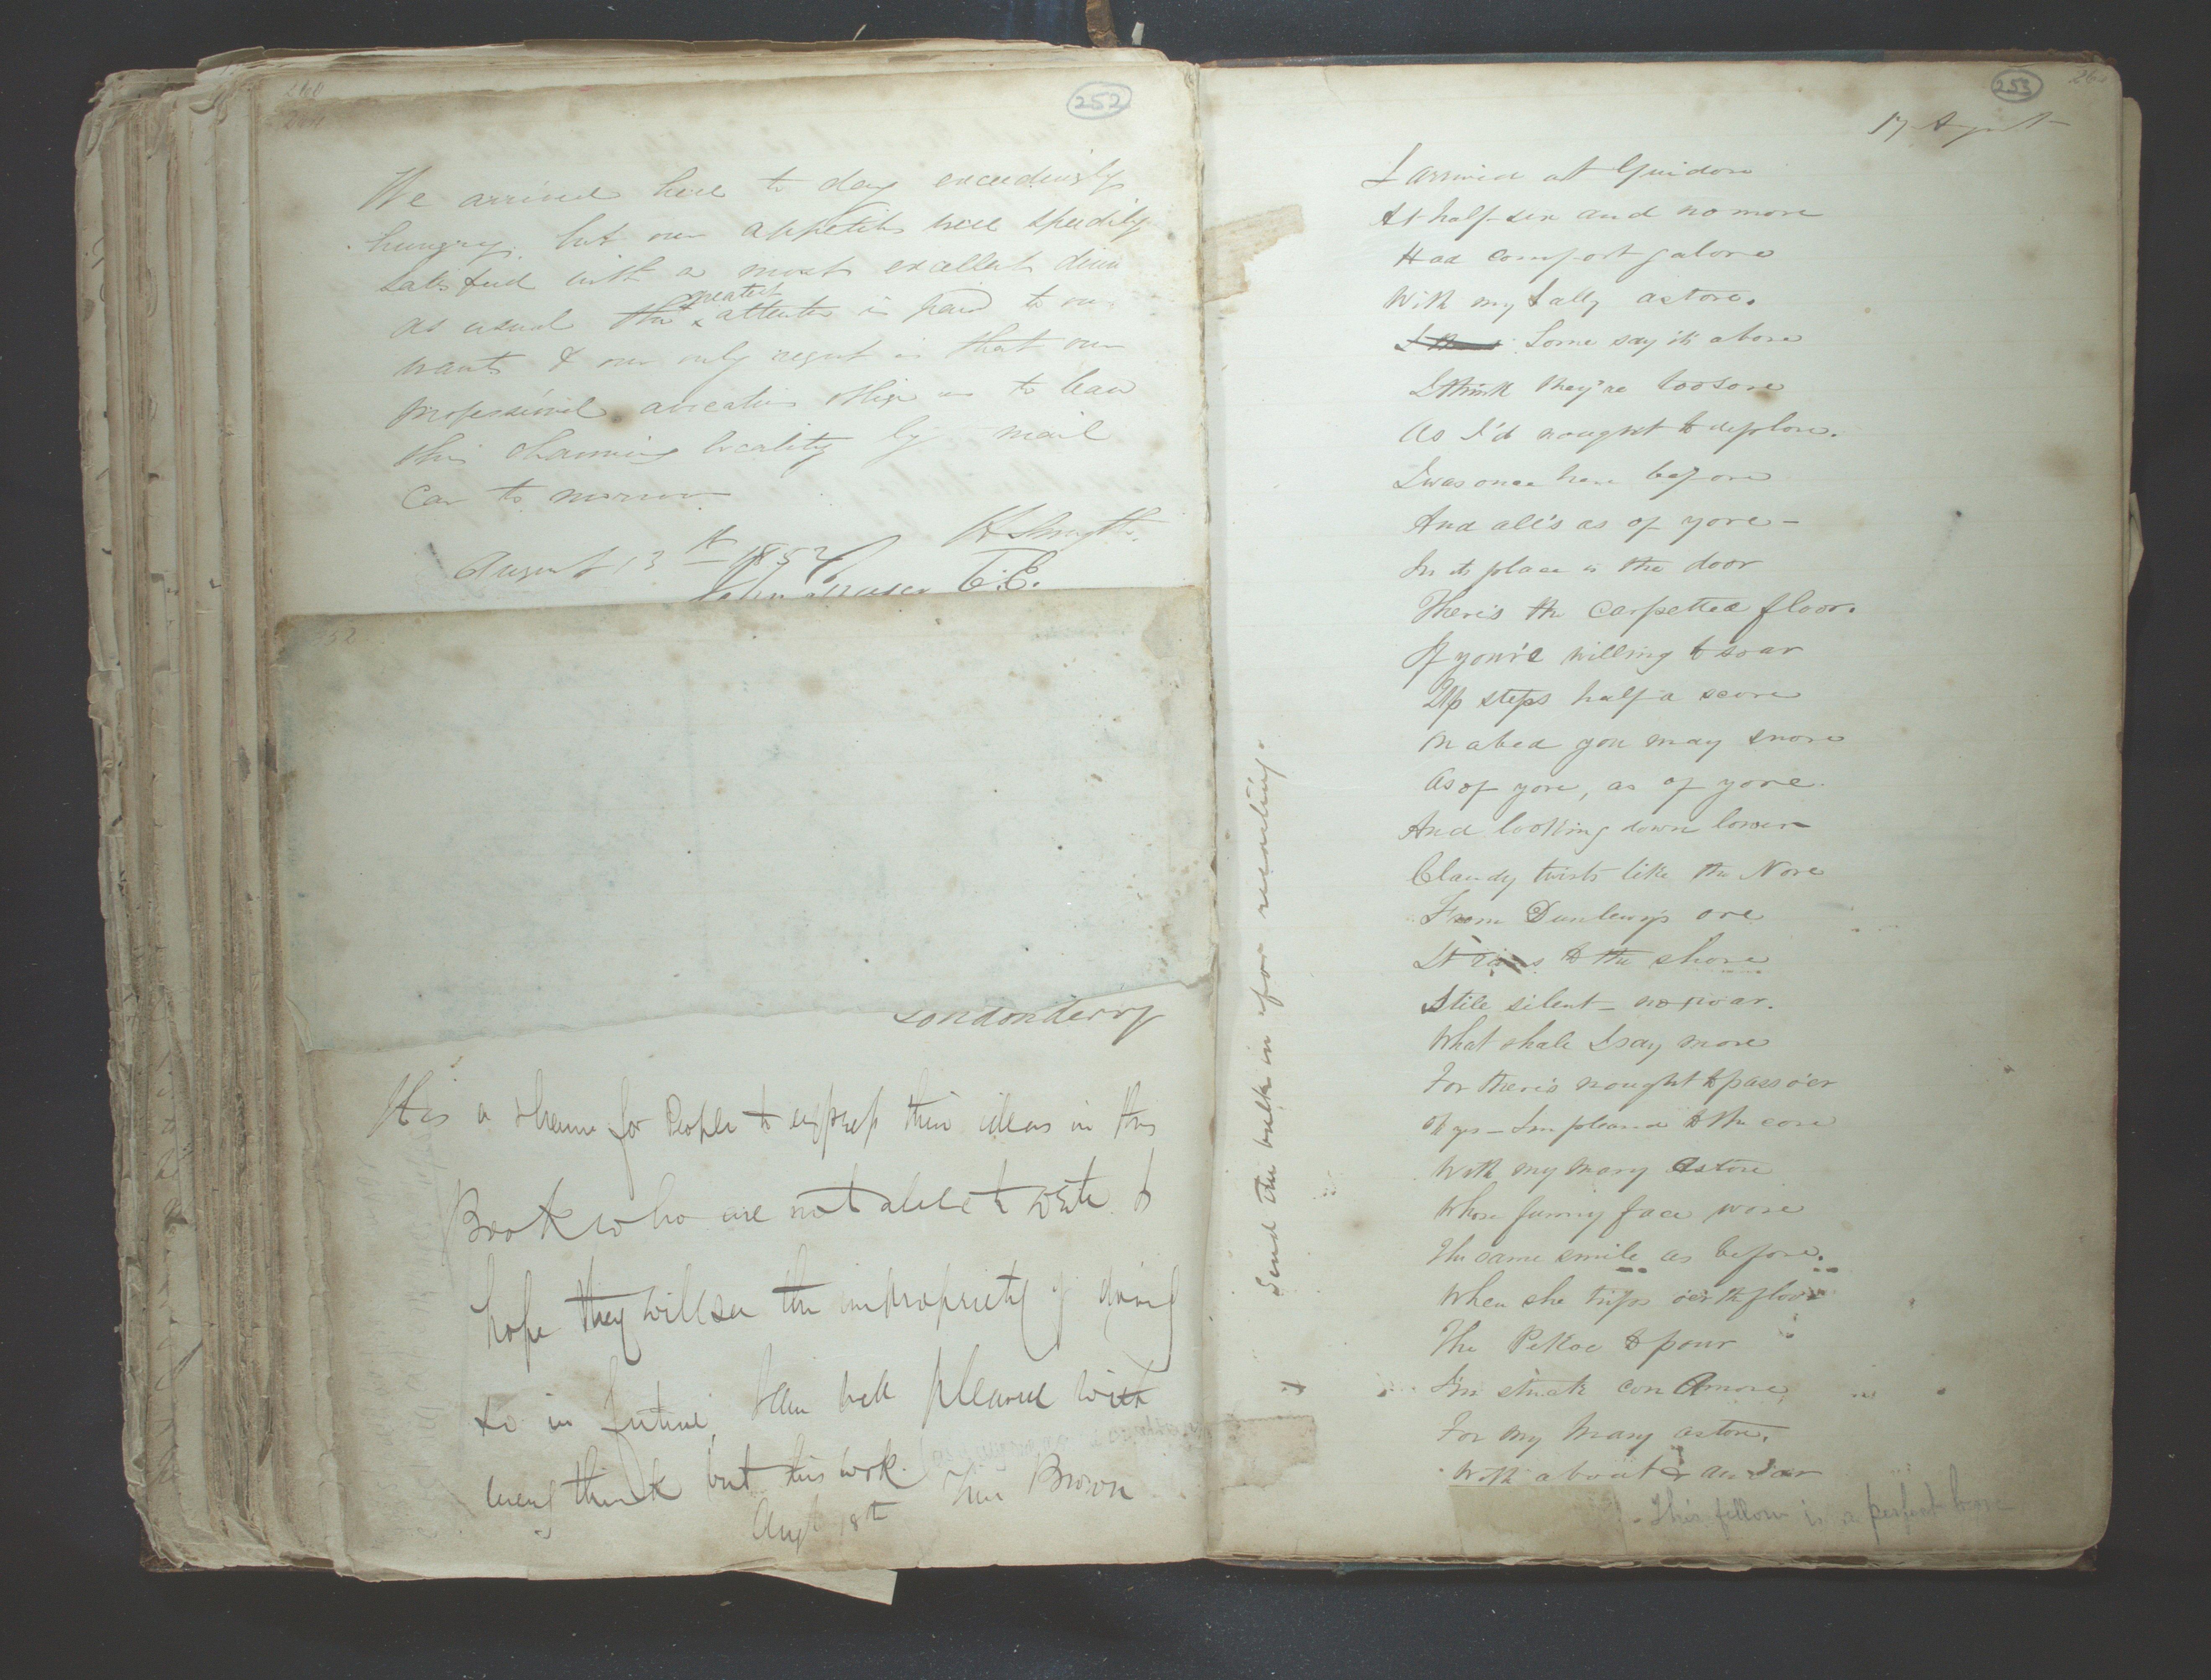 260
252
We arrived here to day exceedingly
hungry, but our appetites were speedily
satisfied with a most excellent dinn
as usual the greatest attention is paid to our
wants & our only regret is that our
professional avocations oblige us to leave
this charming locality by mail
Car to morrow
H Smyth
August 13th 1852
John Fraser C.E.
52
Londonderry
It is a shame for People to express their ideas in this
Book who are not able to write &
hope they will see the impropriety of doing
so in future, I am well pleased with
every think but this work. Brown
Augt 18th
253
17 August
I arrived at Guidore
At half-six and no more
Had comfort galore
With my Sally astore.
Some say it's above
I think they're too sore
As I'd nought to deplore.
I was once here before
And all's as of yore -
In its place is the door
There's the carpetted floor.
If you're willing to soar
Up steps half a score
In a bed you may snore
As of yore, as of yore.
And looking down lower
Claudy twists like the Nore
From Dunlewy's ore
It runs to the shore
Still silent - no roar.
What shall I say more
For there's nought to pass o'er
O yes - I'm pleased to the core
With my Mary Astore
Whose funny face wore
The same smile as before.
When she trips o'er the floor
The Pekoe to pour
I'm struck con Amore
For my Mary astore.
With about &
This fellow is a perfect bore
Send the bulk in for